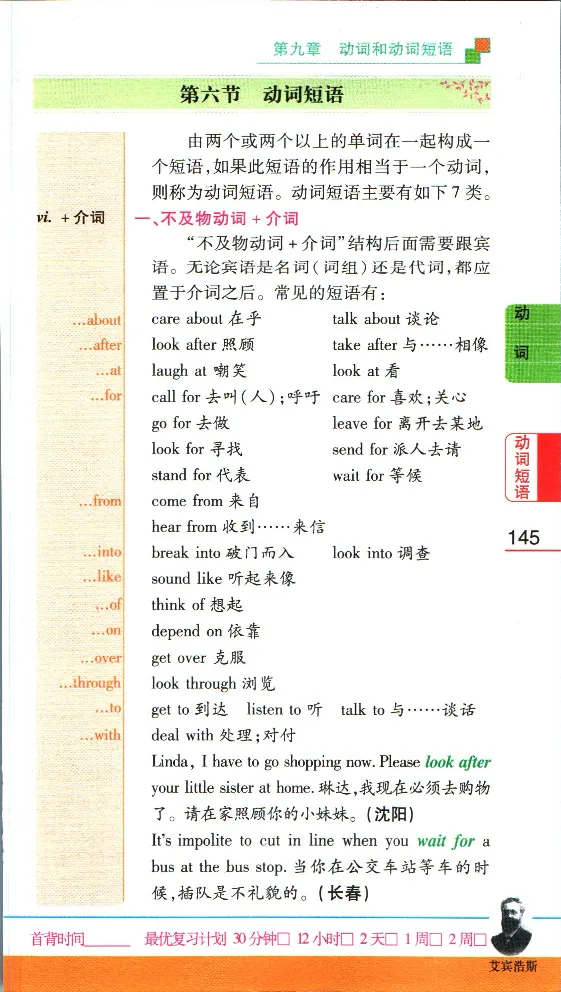 第九章 动词和动词短语
第六节 动词短语
由两个或两个以上的单词在一起构成一
个短语,如果此短语的作用相当于一个动词,
则称为动词短语。动词短语主要有如下7类。
vi. + 介词
一、不及物动词 + 介词
“不及物动词 + 介词”结构后面需要跟宾
语。无论宾语是名词(词组)还是代词,都应
置于介词之后。常见的短语有:
...about care about 在乎 talk about 谈论
...after look after 照顾 take after 与……相像
...at laugh at 嘲笑 look at 看
...for call for 去叫(人);呼吁 care for 喜欢;关心
go for 去做 leave for 离开去某地
look for 寻找 send for 派人去请
stand for 代表 wait for 等候
...from come from 来自
hear from 收到……来信
...into break into 破门而入 look into 调查
...like sound like 听起来像
...of think of 想起
...on depend on 依靠
...over get over 克服
...through look through 浏览
...to get to 到达 listen to 听 talk to 与……谈话
...with deal with 处理;对付
Linda, I have to go shopping now. Please look after
your little sister at home. 琳达,我现在必须去购物
了。请在家照顾你的小妹妹。(沈阳)
It's impolite to cut in line when you wait for a
bus at the bus stop. 当你在公交车站等车的时
候,插队是不礼貌的。(长春)
动
词
动词短语
145
首背时间______ 最优复习计划 30分钟□ 12小时□ 2天□ 1周□ 2周□
艾宾浩斯